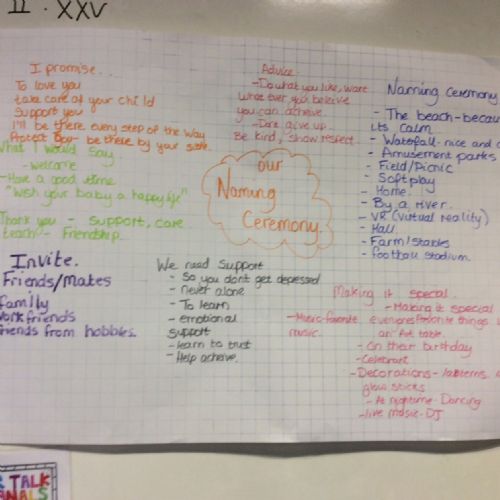 II · XXV
I promise...
To love you
take care of your child
Support you
I'll be there every step of the way
Protect you - be there by your side.
Advice
- Do what you like, want
whatever you believe
you can achieve.
- Don't give up.
Be kind, show respect.
Naming Ceremony
- The beach - because
its calm
- Waterfall - nice and
- Amusement parks
- Field/Picnic
- Softplay
- Home.
- By a river.
- VR (Virtual Reality)
- Hall
- Farm/Stables
- football stadium.
What I would say
- welcome
- Have a good time
"Wish your baby a happy life"
Thank you - support, care
teach - Friendship
our
Naming
Ceremony.
Invite.
Friends/Makes
family
Work friends
friends from hobbies.
We need support
- So you don't get depressed
- never alone
- To learn
- emotional
support
- learn to trust
- Help acheive.
Making it special.
- Making it special
- Music-favorite everyones favorite things
music. on table.
- On their birthday
- Celebrant
- Decorations - lanterns,
glow sticks
- At nightime - Dancing
- live music - DJ
TALK